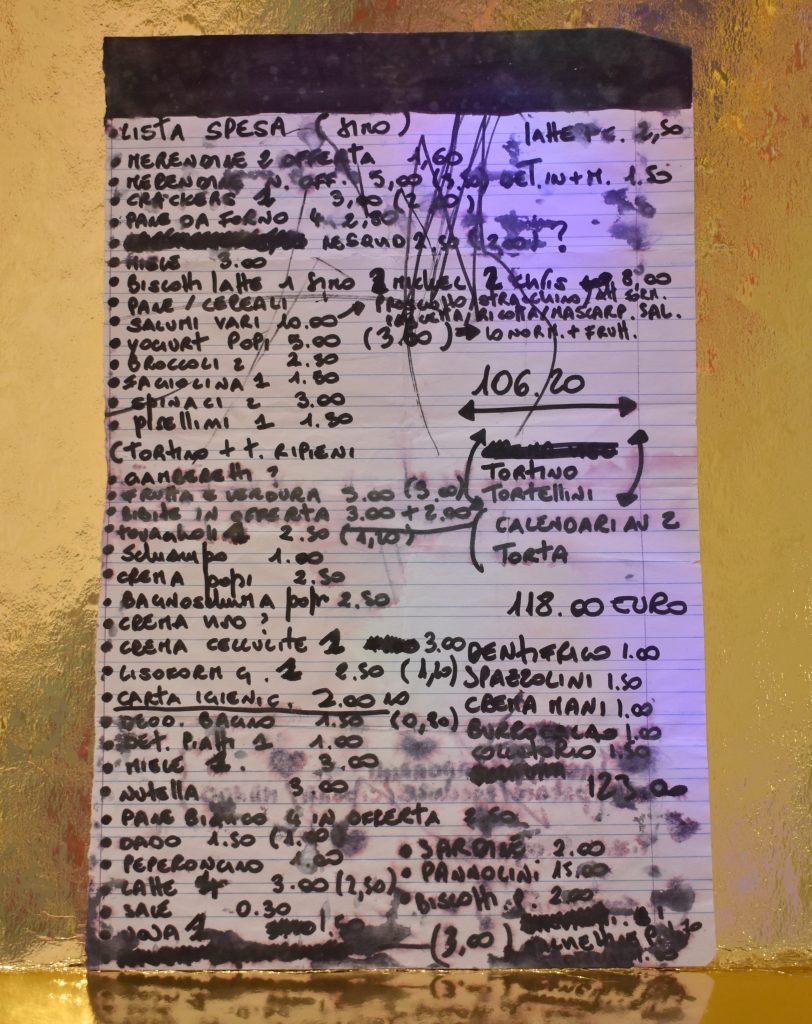 LISTA SPESA (SIMO)
LATTE PC. 2,50
• MERENDINE 2 OFFERTA 1,60
• MERENDINE N. OFF. 5,00 (3,50) DET. IN + M. 1.50
• CRACKERS 1 3,00
• PANE DA FORNO 4 2,80
NESQUIK 2.50 ?
• MIELE 3.00
• BISCOTTI LATTE 1 SIMO 2 MICHEL 2 CHRIS 8,00
• PANE / CEREALI
• SALUMI VARI 10.00 → PROSCIUTTO/STRACCHINO/
/RICOTTA/MASCARP. SAL.
• YOGURT POPI 5.00 (3,80) → 10 NORM. + FRUTT.
• BROCCOLI 2 2.50
• FAGIOLINA 1 1.80
106.20
• SPINACI 2 3.00
• PISELLINI 1 1.80
(TORTINO + T. RIPIENI
TORTINO
• GAMBERETTI ?
TORTELLINI
• FRUTTA E VERDURA 5.00 (3,00)
• BIBITE IN OFFERTA 3.00 + 2.00
CALENDARI AV 2
• TOVAGLIOLI 1 2.50 (1,20)
TORTA
• SCHIAMPO 1.00
• CREMA POPI 2.50
• BAGNOSCHIUMA POPI 2.50
118.00 EURO
• CREMA VISO ?
• CREMA CELLULITE 1 3.00
DENTIFRICIO 1.00
• LISOFORM G. 1 2.50 (1,20)
SPAZZOLINI 1.50
• CARTA IGIENIC. 2.00 10
CREMA MANI 1.00
• DEOD. BAGNO 1.50 (0,80)
BURROCACAO 1.00
• DET. PIATTI 1 1.00
COLLUTORIO 1.50
• MIELE 1. 3.00
• NUTELLA 3.00
123.00
• PANE BIANCO 4 IN OFFERTA 2.50
• DADO 1.50
• SARDINE 2.00
• PEPERONCINO 1.00
• PANNOLINI 15.00
• LATTE 3.00 (2,50)
• BISCOTTI 2.00
• SALE 0.30
• UOVA 1 1.50
(3,00)